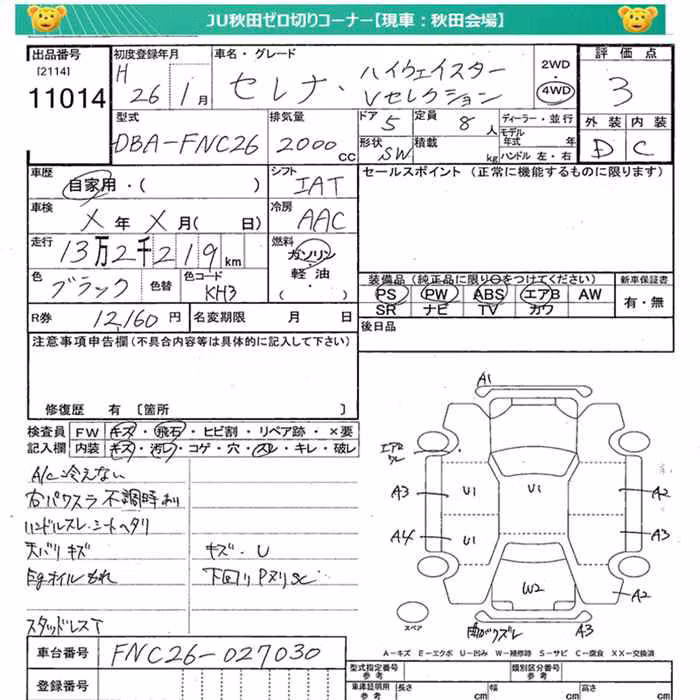 JU秋田ゼロ切りコーナー【現車：秋田会場】
出品番号 初度登録年月 車名・グレード 2WD 評価点
[2114] H セレナ・ハイウェイスター 4WD 3
11014 26 1月 Vセレクション 外装 内装
型式 排気量 ドア 5 定員 8人 ディーラー・並行 D C
DBA-FNC26 2000cc 形状 SW 積載 kg モデル年式 年
ハンドル 左・右
車歴 自家用・( ) シフト IAT セールスポイント（正常に機能するものに限ります）
車検 X年X月( 日) 冷房 AAC
走行 13万2千219km 燃料 ガソリン
軽油
・( )
色 ブラック 色替 色コード KH3
装備品（純正品に限り○をつけてください） 新車保証書
PS PW ABS エアB AW 有・無
SR ナビ TV カワ
R券 12,160円 名変期限 月 日 後日品
注意事項申告欄（不具合内容等は具体的に記入して下さい）
修復歴 有 [箇所 ]
検査員 FW キズ・飛石・ヒビ割・リペア跡・×要
記入欄 内装 キズ・汚レ・コゲ・穴・スレ・キレ・破レ
A/C冷えない
右パワスラ不調時あり
ハンドルスレ・シートヘタリ
天バリキズ キズ・U
Egオイルもれ 下回りPヌリSC
スタッドレスT
A1
エアロ
A3 U1 U1 A2
A4 U1 A3
W2 A2
スペア 曲がりズレ A3
A－キズ E－エクボ U－凹み W－補修跡 S－サビ C－腐食 XX－交換済
車台番号 FNC26-027030
登録番号
型式指定番号 参考 類別区分番号 参考
車庫証明用 参考 長さ cm 幅 cm 高さ cm